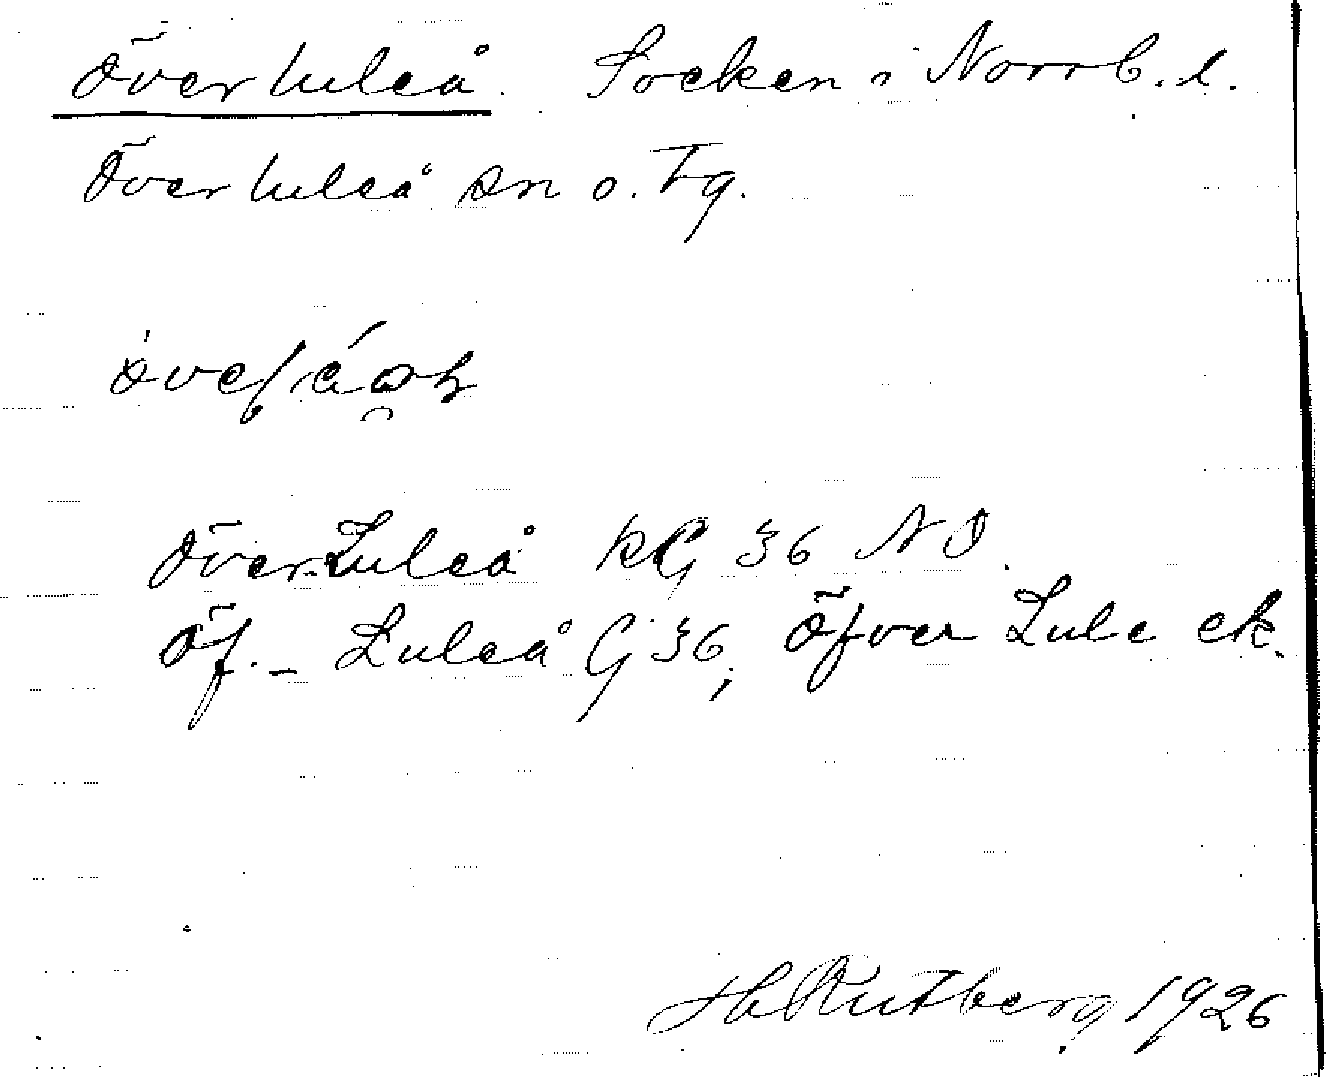 Överluleå. Socken i Norrb. l.
Överluleå sn o. Tg.
Över-Luleå KG 36 NO.
Öf. - Luleå G 36, Öfver Lule ek.
H Rutberg 1926